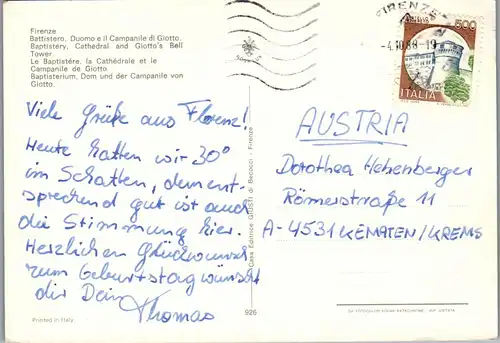 Firenze
Battistero, Duomo e il Campanile di Giotto.
Baptistery, Cathedral and Giotto's Bell
Tower.
Le Baptistére, la Cathédrale et le
Campanile de Giotto
Baptisterium, Dom und der Campanile von
Giotto.
Viele Grüße aus Florenz!
Heute hatten wir 30°
im Schatten, dement-
sprechend gut ist auch
die Stimmung hier.
Herzlichen Glückwunsch
zum Geburtstag wünscht
dir Dein
Thomas
Printed in Italy
926
Casa Editrice GIUSTI di Becocci - Firenze
FIRENZE
-4.10.88-19
500
ITALIA
AUSTRIA
Dorothea Hehenberger
Römerstraße 11
A-4531 KEMATEN/KREMS